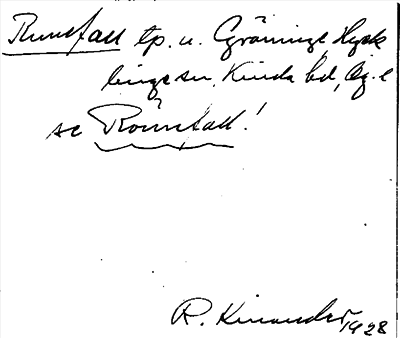 Runsfall tp. u. Gräninge, Hyck
linge sn, Kinda hd, Ög. l
se Römsfall!
R. Kinander 1928